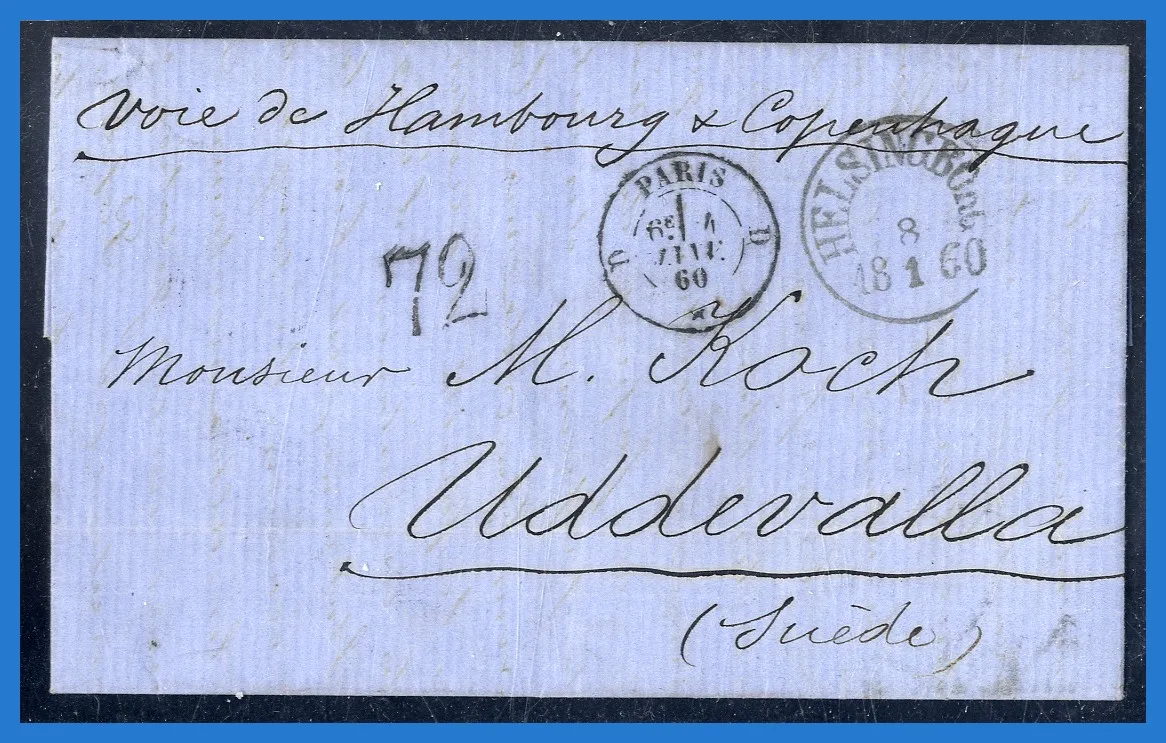 Voie de Hambourg & Copenhague
PARIS
6E 4
JANV.
60
D D
HELSINGBORG
8
18 1 60
72
Monsieur M. Koch
Uddevalla
(Suède)